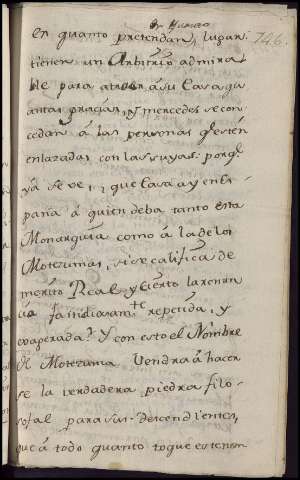 746.
en quanto pretendan, lugar.
tienen un Arbitrio admira
ble para atraer á su Casa qu
antas gracias, y mercedes se con
cedan á las personas q̃ estén
enlazadas con las suyas: porq̃.
yá se ve, que Casa ay en Es-
paña á quien deba tanto esta
Monarquia como á la de los
Motezumas, si se califica de
merito Real, y cierto la renun
cia fastidiosam.te repetida, y
cooperada? y con esto el Nombre
de Motezuma Vendra á hacer
se la verdadera piedra filo-
sofal para sus Descendientes,
que á todo quanto toque